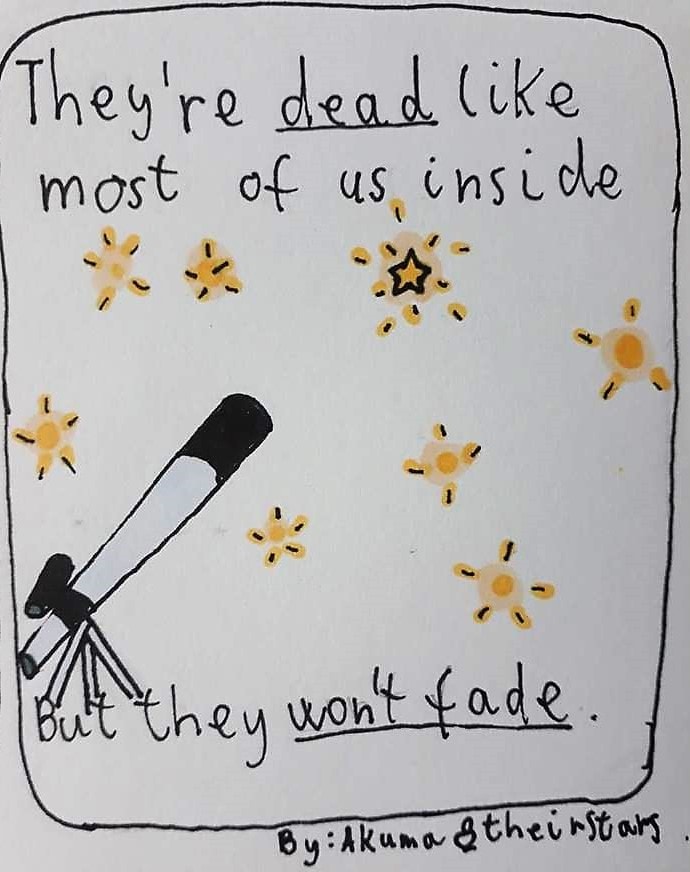 They're dead like
most of us inside
But they won't fade.
By: Akuma & theirstars.